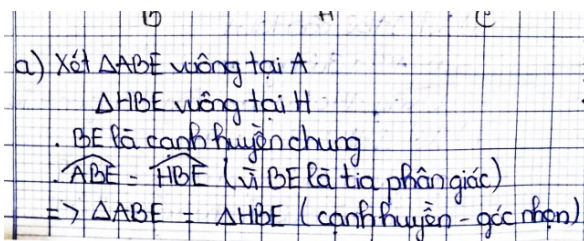 B H C
a) Xét △ABE vuông tại A
△HBE vuông tại H
. BE là cạnh huyền chung
. \widehat{ABE} = \widehat{HBE} (vì BE là tia phân giác)
=> △ABE = △HBE (cạnh huyền - góc nhọn)